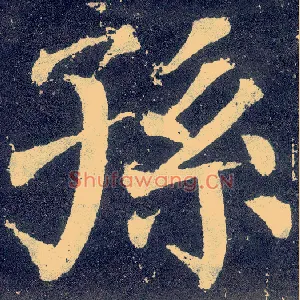 孫
Shufawang.CN